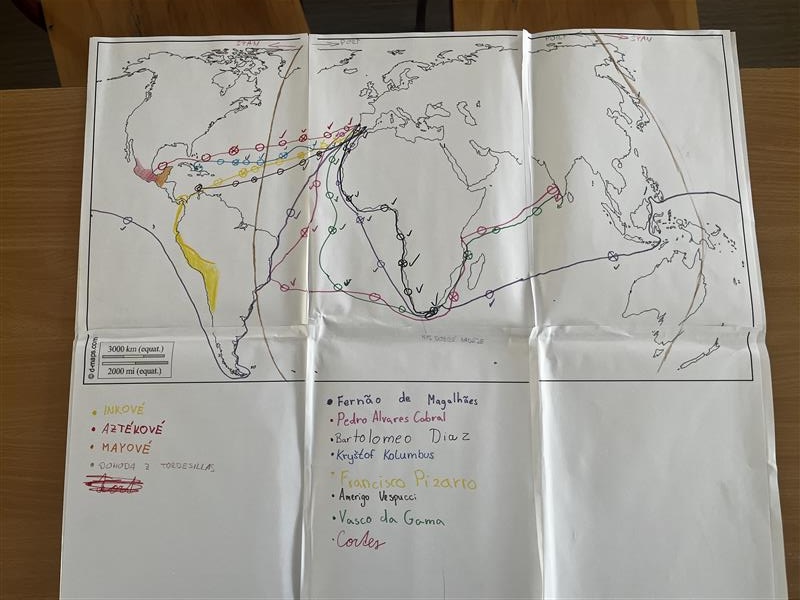 ŠPAN
PORT
PORT
ŠPAN
MYS DOBRÉ NADĚJE
© d-maps.com
3000 km (equat.)
2000 mi (equat.)
• INKOVÉ
• AZTÉKOVÉ
• MAYOVÉ
• DOHODA Z TORDESILLAS
• Fernão de Magalhães
• Pedro Alvares Cabral
• Bartolomeo Diaz
• Kryštof Kolumbus
• Francisco Pizarro
• Amerigo Vespucci
• Vasco da Gama
• Cortes